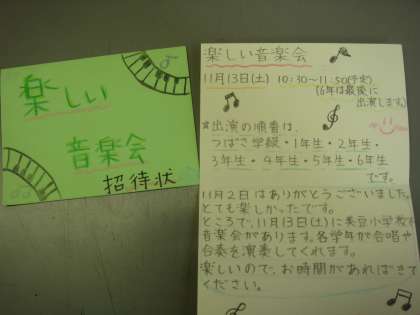 楽しい
音楽会
招待状
楽しい音楽会
11月13日(土) 10:30〜11:50(予定)
(6年は最後に
出演します。)
☆出演の順番は、
つばさ学級・1年生・2年生・
3年生・4年生・5年生・6年生
です。
11月2日はありがとうございました。
とても楽しかったです。
ところで、11月13日(土)に美豆小学校で
音楽会があります。各学年が合唱や
合奏を演奏してくれます。
楽しいので、お時間があればきて
ください。